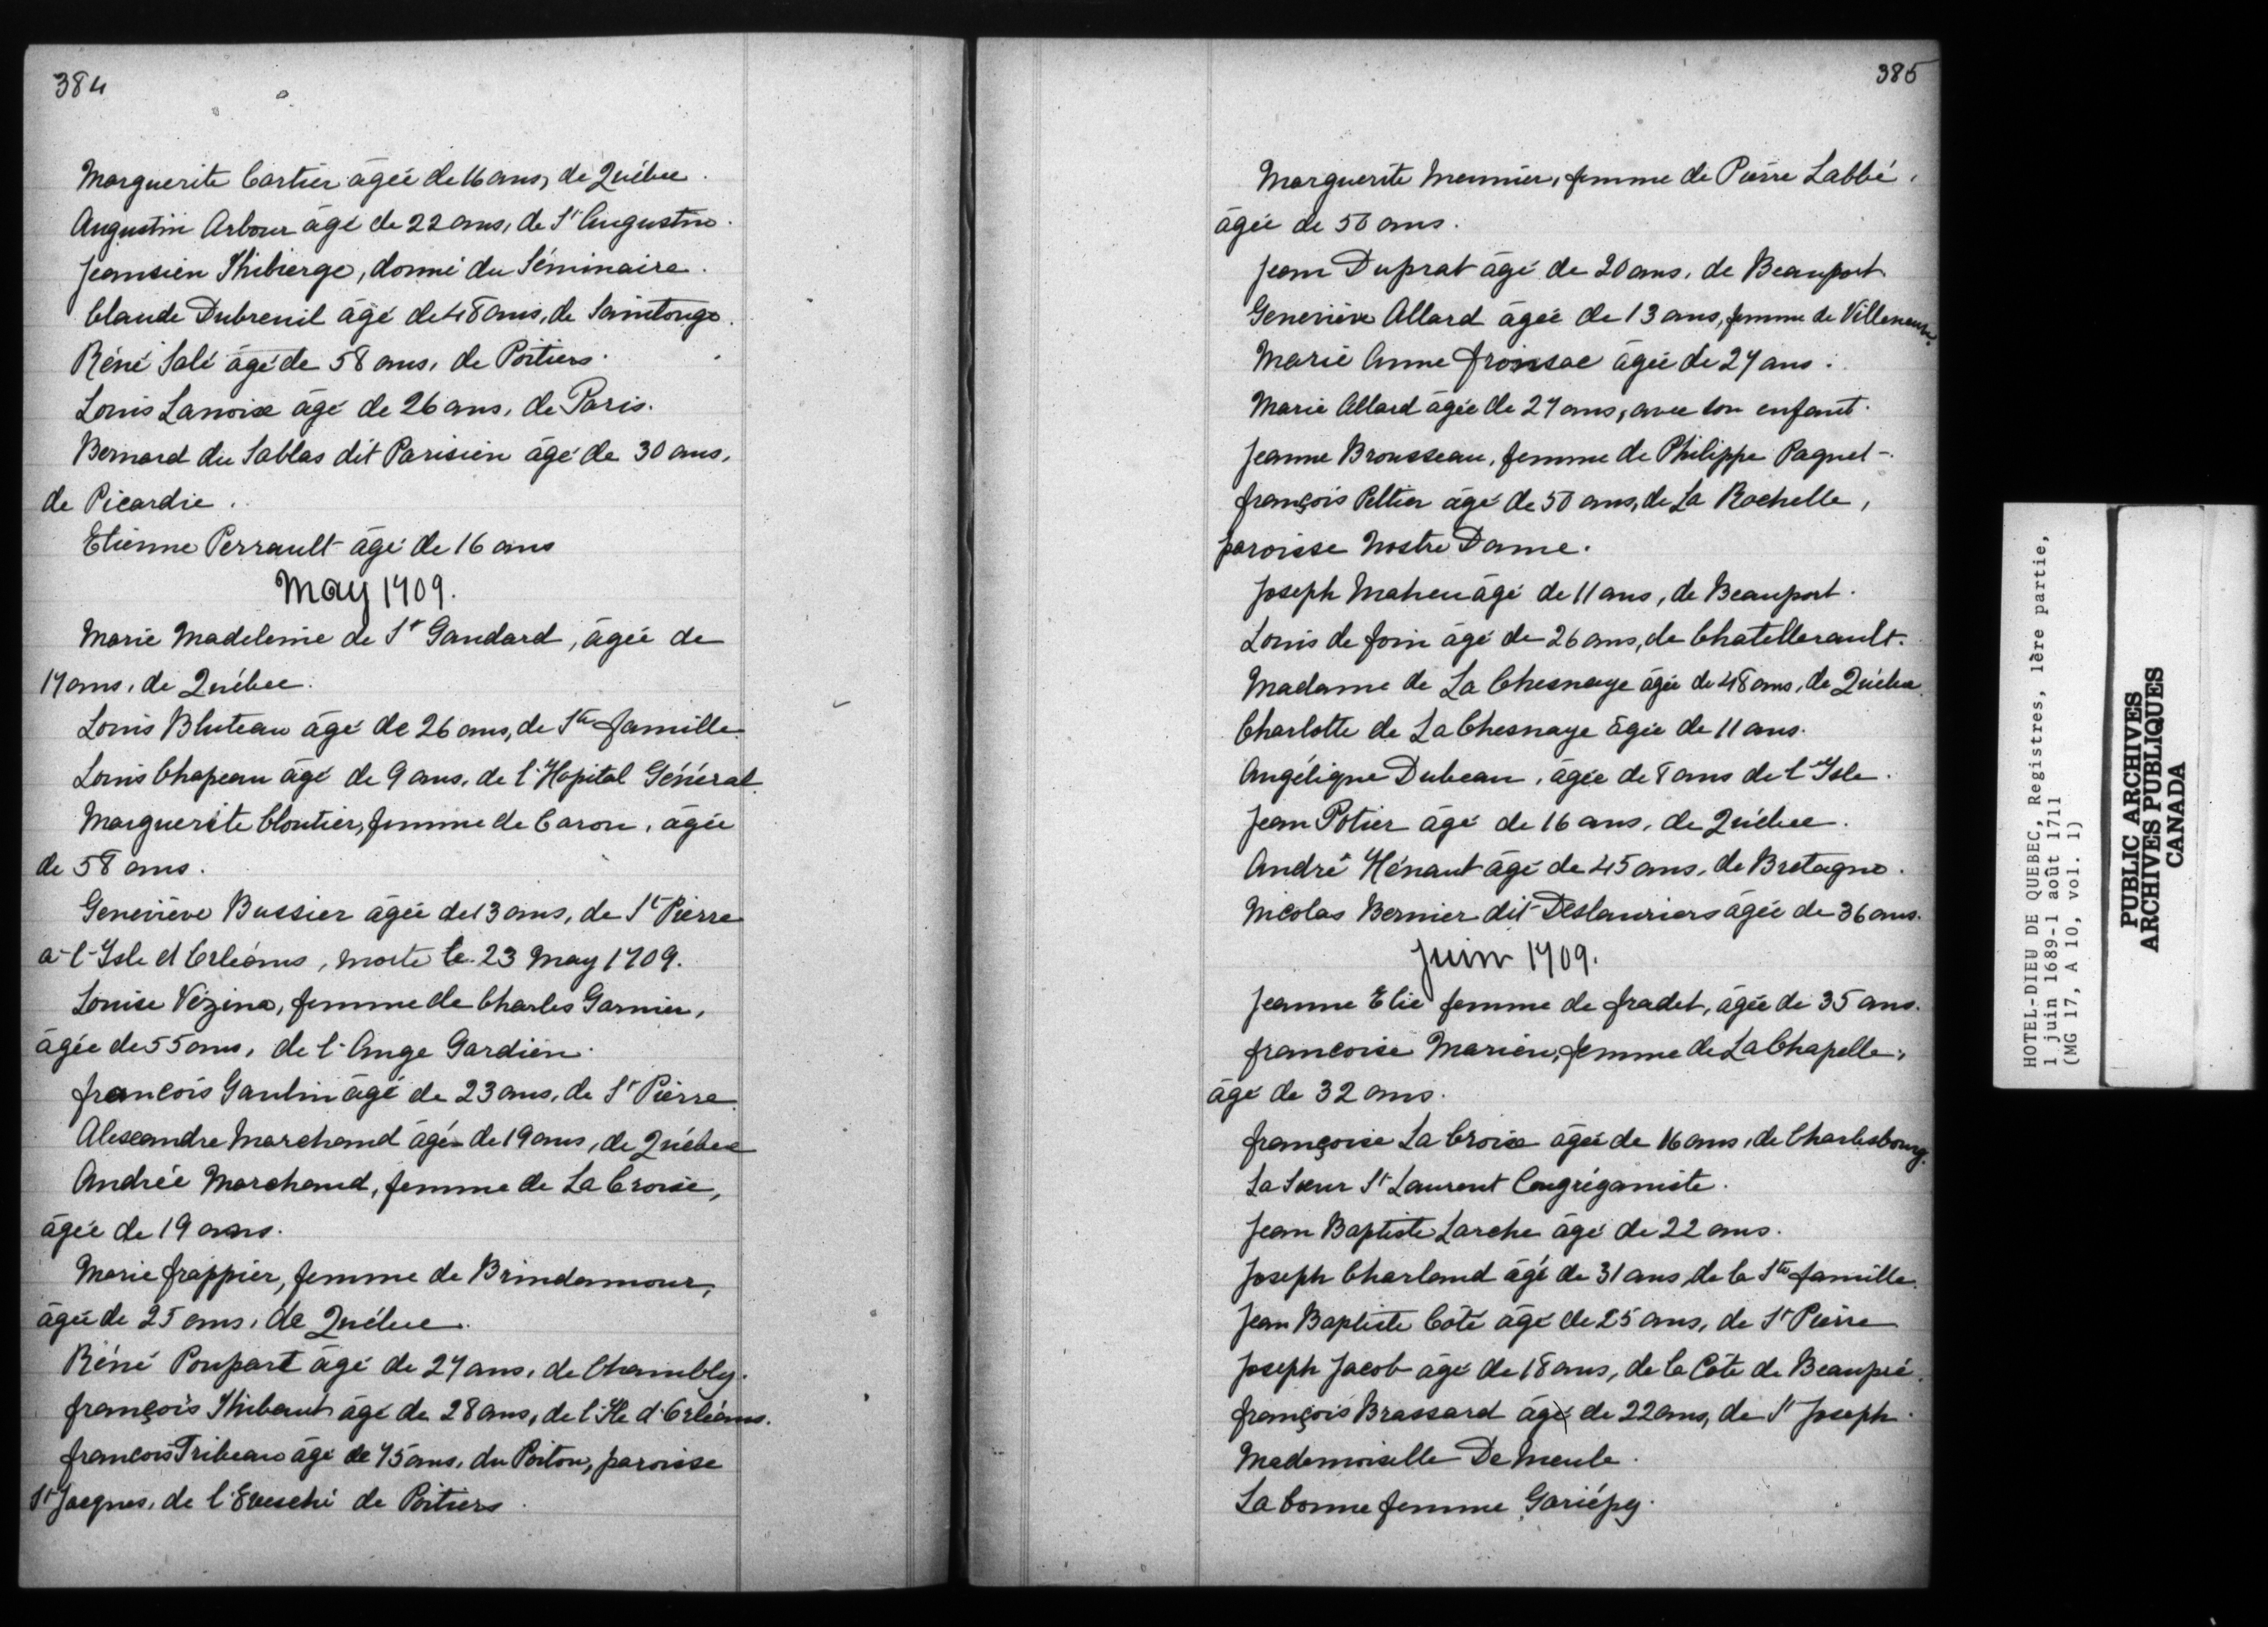 384
Marguerite Cartier âgée de 16 ans, de Québec.
Augustin Arbour âgé de 22 ans, de St Augustin.
Jean Thibierge, donné du Séminaire.
Claude Dubreuil âgé de 48 ans, de Saintonge.
Réné Salé âgé de 58 ans, de Poitiers.
Louis Lanoix âgé de 26 ans, de Paris.
Bernard du Sablas dit Parisien âgé de 30 ans,
de Picardie.
Etienne Perrault âgé de 16 ans
May 1709.
Marie Madeleine de St Gandard, âgée de
17 ans, de Québec.
Louis Bluteau âgé de 26 ans, de Ste famille.
Louis Chapeau âgé de 9 ans, de l'Hopital Général.
Marguerite Cloutier, femme de Caron, âgée
de 58 ans.
Geneviève Bussier âgée de 13 ans, de St Pierre
à l'Isle d'Orléans, morte le 23 May 1709.
Louise Vézina, femme de Charles Garnier,
âgée de 55 ans, de l'Ange Gardien.
françois Gaulin âgé de 23 ans, de St Pierre.
Alexandre Marchand âgé de 19 ans, de Québec
Andrée Marchand, femme de La Croix,
âgée de 19 ans.
Marie frappier, femme de Brindamour,
âgée de 25 ans, de Québec.
Réné Poupart âgé de 27 ans, de Chambly.
françois Thibaut âgé de 28 ans, de l'Ile d'Orléans.
francois Tribeau âgé de 75 ans, du Poitou, paroisse
St Jacques, de l'Evesché de Poitiers.
385
Marguerite Meunier, femme de Pierre Labbé,
âgée de 50 ans.
Jean Duprat âgé de 20 ans, de Beauport
Geneviève Allard âgée de 13 ans, femme de Villeneuve.
Marie Anne fronsac âgée de 27 ans.
Marie Allard âgée de 27 ans, avec son enfant.
Jeanne Brousseau, femme de Philippe Paquet.
françois Peltier âgé de 50 ans, de La Rochelle,
paroisse Nostre Dame.
Joseph Maheu âgé de 11 ans, de Beauport.
Louis de foin âgé de 26 ans, de Chatellerault.
Madame de La Chesnaye âgée de 48 ans, de Québec.
Charlotte de La Chesnaye âgée de 11 ans.
Angélique Dubeau, âgée de 8 ans de l'Isle.
Jean Potier âgé de 16 ans, de Québec.
André Hénaut âgé de 45 ans, de Bretagne.
Nicolas Bernier dit Deslauriers âgée de 36 ans.
Juin 1709.
Jeanne Elie femme de fradet, âgée de 35 ans.
francoise Marien, femme de La Chapelle,
âgé de 32 ans.
françoise La Croix âgée de 16 ans, de Charlesbourg.
La Sœur St Laurent Congréganiste.
Jean Baptiste Larche âgé de 22 ans.
Joseph Charland âgé de 31 ans, de la Ste famille.
Jean Baptiste Coté âgé de 25 ans, de St Pierre
Joseph Jacob âgé de 18 ans, de la Côte de Beaupré.
françois Brassard âgé de 22 ans, de St Joseph.
Mademoiselle De Meule.
La bonne femme Gariépy.
HOTEL-DIEU DE QUEBEC, Registres, 1ère partie,
1 juin 1689-1 août 1711
(MG 17, A 10, vol. 1)
PUBLIC ARCHIVES
ARCHIVES PUBLIQUES
CANADA